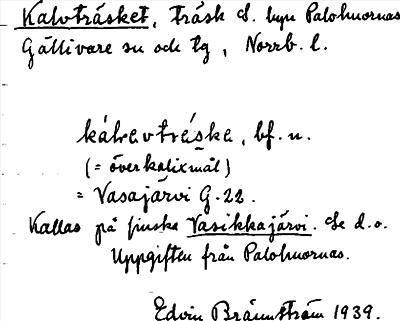 Kalvträsket, träsk S. byn Palohuornas
Gällivare sn och tg, Norrb. l.
kálvavträske, bf. n.
(= överkalixmål)
= Vasajärvi G-22.
Kallas på finska Vasikkajärvi. Se d.o.
Uppgiften från Palohuornas.
Edvin Brännström 1939.